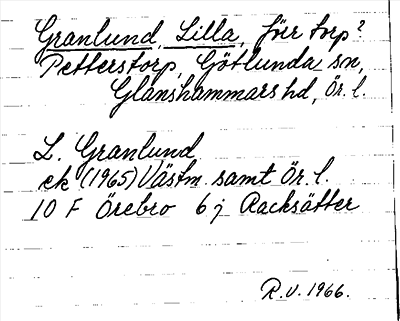 Granlund, Lilla, förr torp?
Petterstorp, Götlunda sn,
Glanshammars hd, Ör. l.
L. Granlund
ek (1965) Västm. samt Ör. l.
10 F Örebro 6 j Racksätter
R.V. 1966.